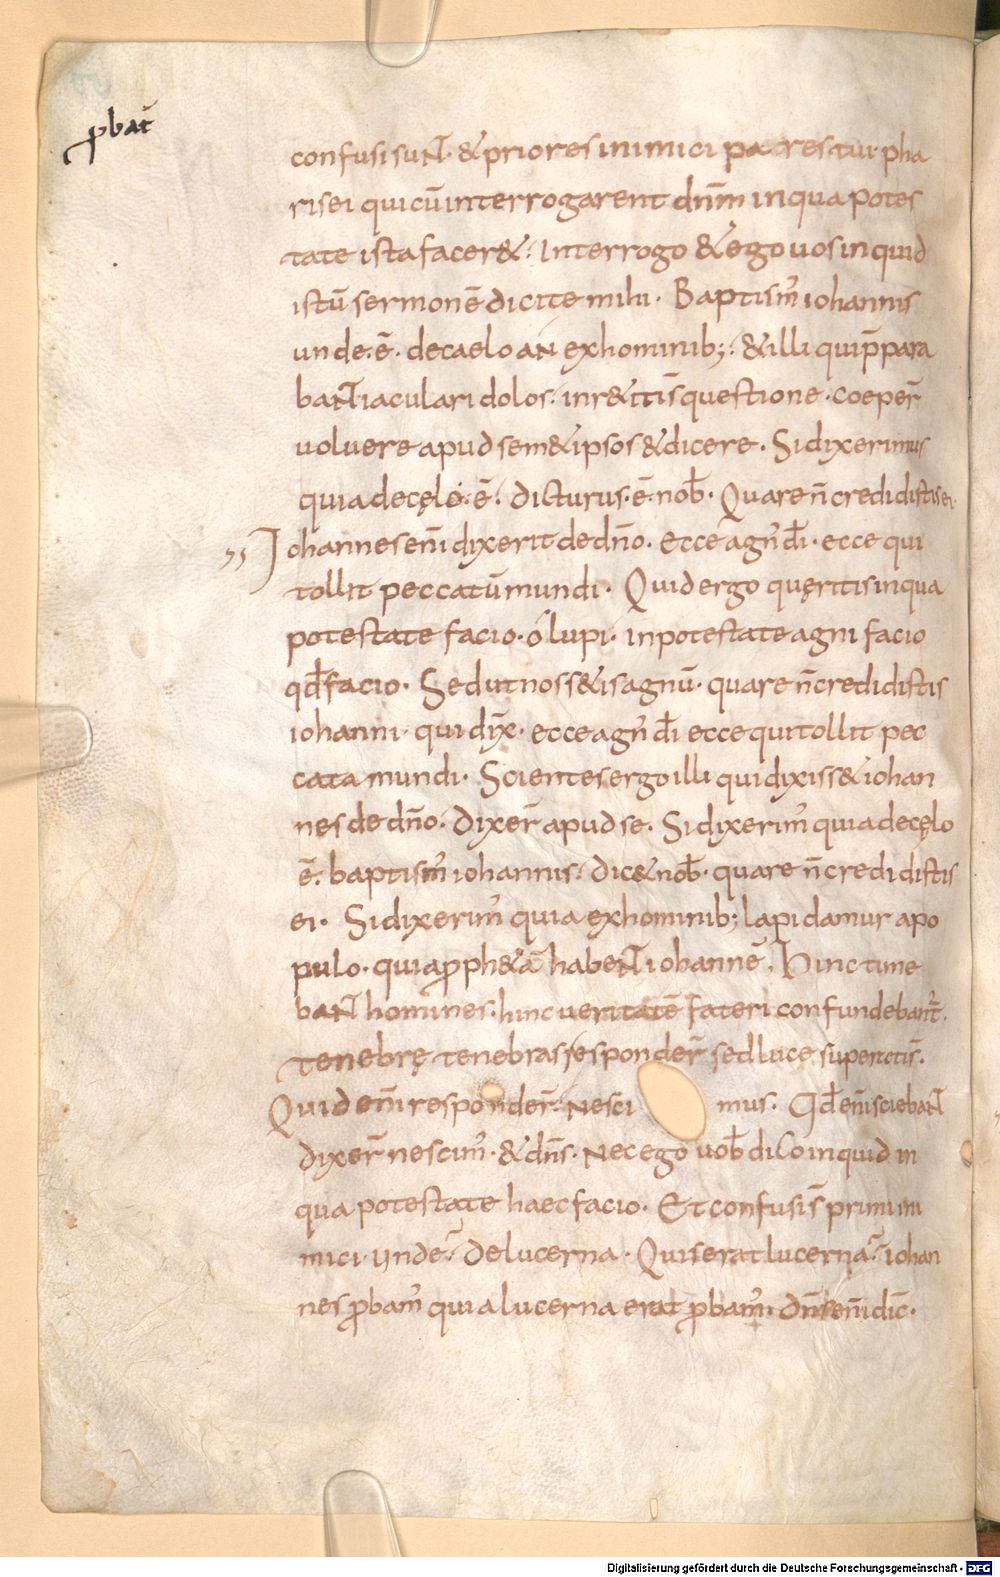 ꝓbat̄
confusi suNT. & priores inimici patres tui. pha
risei qui cū interrogarent dn̄m in qua potes
tate ista facer&. Interrogo & ego uos inquid
istū sermonē dicite mihi. Baptism̄ iohannis
unde ē. de caelo aN ex hominib;. & illi qui p̄para
baNT iaculari dolos. inr&itis̄ questione. coeper̄
uoluere apud sem&ipsos & dicere. Si dixerimus
quia de cęlo ē. dicturus ē nob̄. Quare n̄ credidistis ei.
Iohannes enī dixerit de dn̄o. ecce agn̄ dī. ecce qui
tollit peccatū mundi. Quid ergo quęritis in qua
potestate facio. ó lupi. in potestate agni facio
qd̄ facio. Sed ut noss&is agnū. quare n̄ credidistis
iohanni. qui dix̄. ecce agn̄ dī ecce qui tollit pec
cata mundi. Scientes ergo illi qui dixiss& iohan
nes de dn̄o. Dixer̄ apud se. Si dixerim̄ quia de cęlo
ē. baptism̄ iohannis. dic& nob̄. quare n̄ credidistis
ei. Si dixerim̄ quia ex hominib; lapidamur a po
pulo. quia ꝓph&ā habeNT iohannē. Hinc time
baNT homines. hinc ueritatē fateri confundebant̄.
Tenebrę tenebras responder̄ sed luce
Quid enī responder̄. Nesci mus. Qd̄ enī sciebaNT
dixer̄ nescim̄. & dn̄s. Nec ego uob̄ dico inquid in
qua potestate haec facio. Et confusis̄ primi ini
mici. unde. De lucerna. Quis erat lucerna. iohan
nes ꝓbam̄ quia lucerna erat ꝓbam̄. Dn̄s enī dic̄.
Digitalisierung gefördert durch die Deutsche Forschungsgemeinschaft - DFG